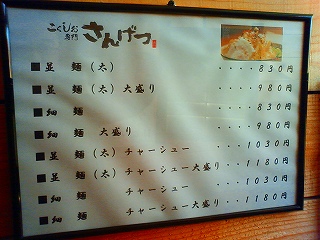 こくしお
専門
さんげつ
■並 麺(太) ・・・・830円
■並 麺(太)大盛り ・・・・980円
■細 麺 ・・・・830円
■細 麺 大盛り ・・・・980円
■並 麺(太)チャーシュー ・・・・1030円
■並 麺(太)チャーシュー大盛り ・・・・1180円
■細 麺 チャーシュー ・・・・1030円
■細 麺 チャーシュー大盛り ・・・・1180円